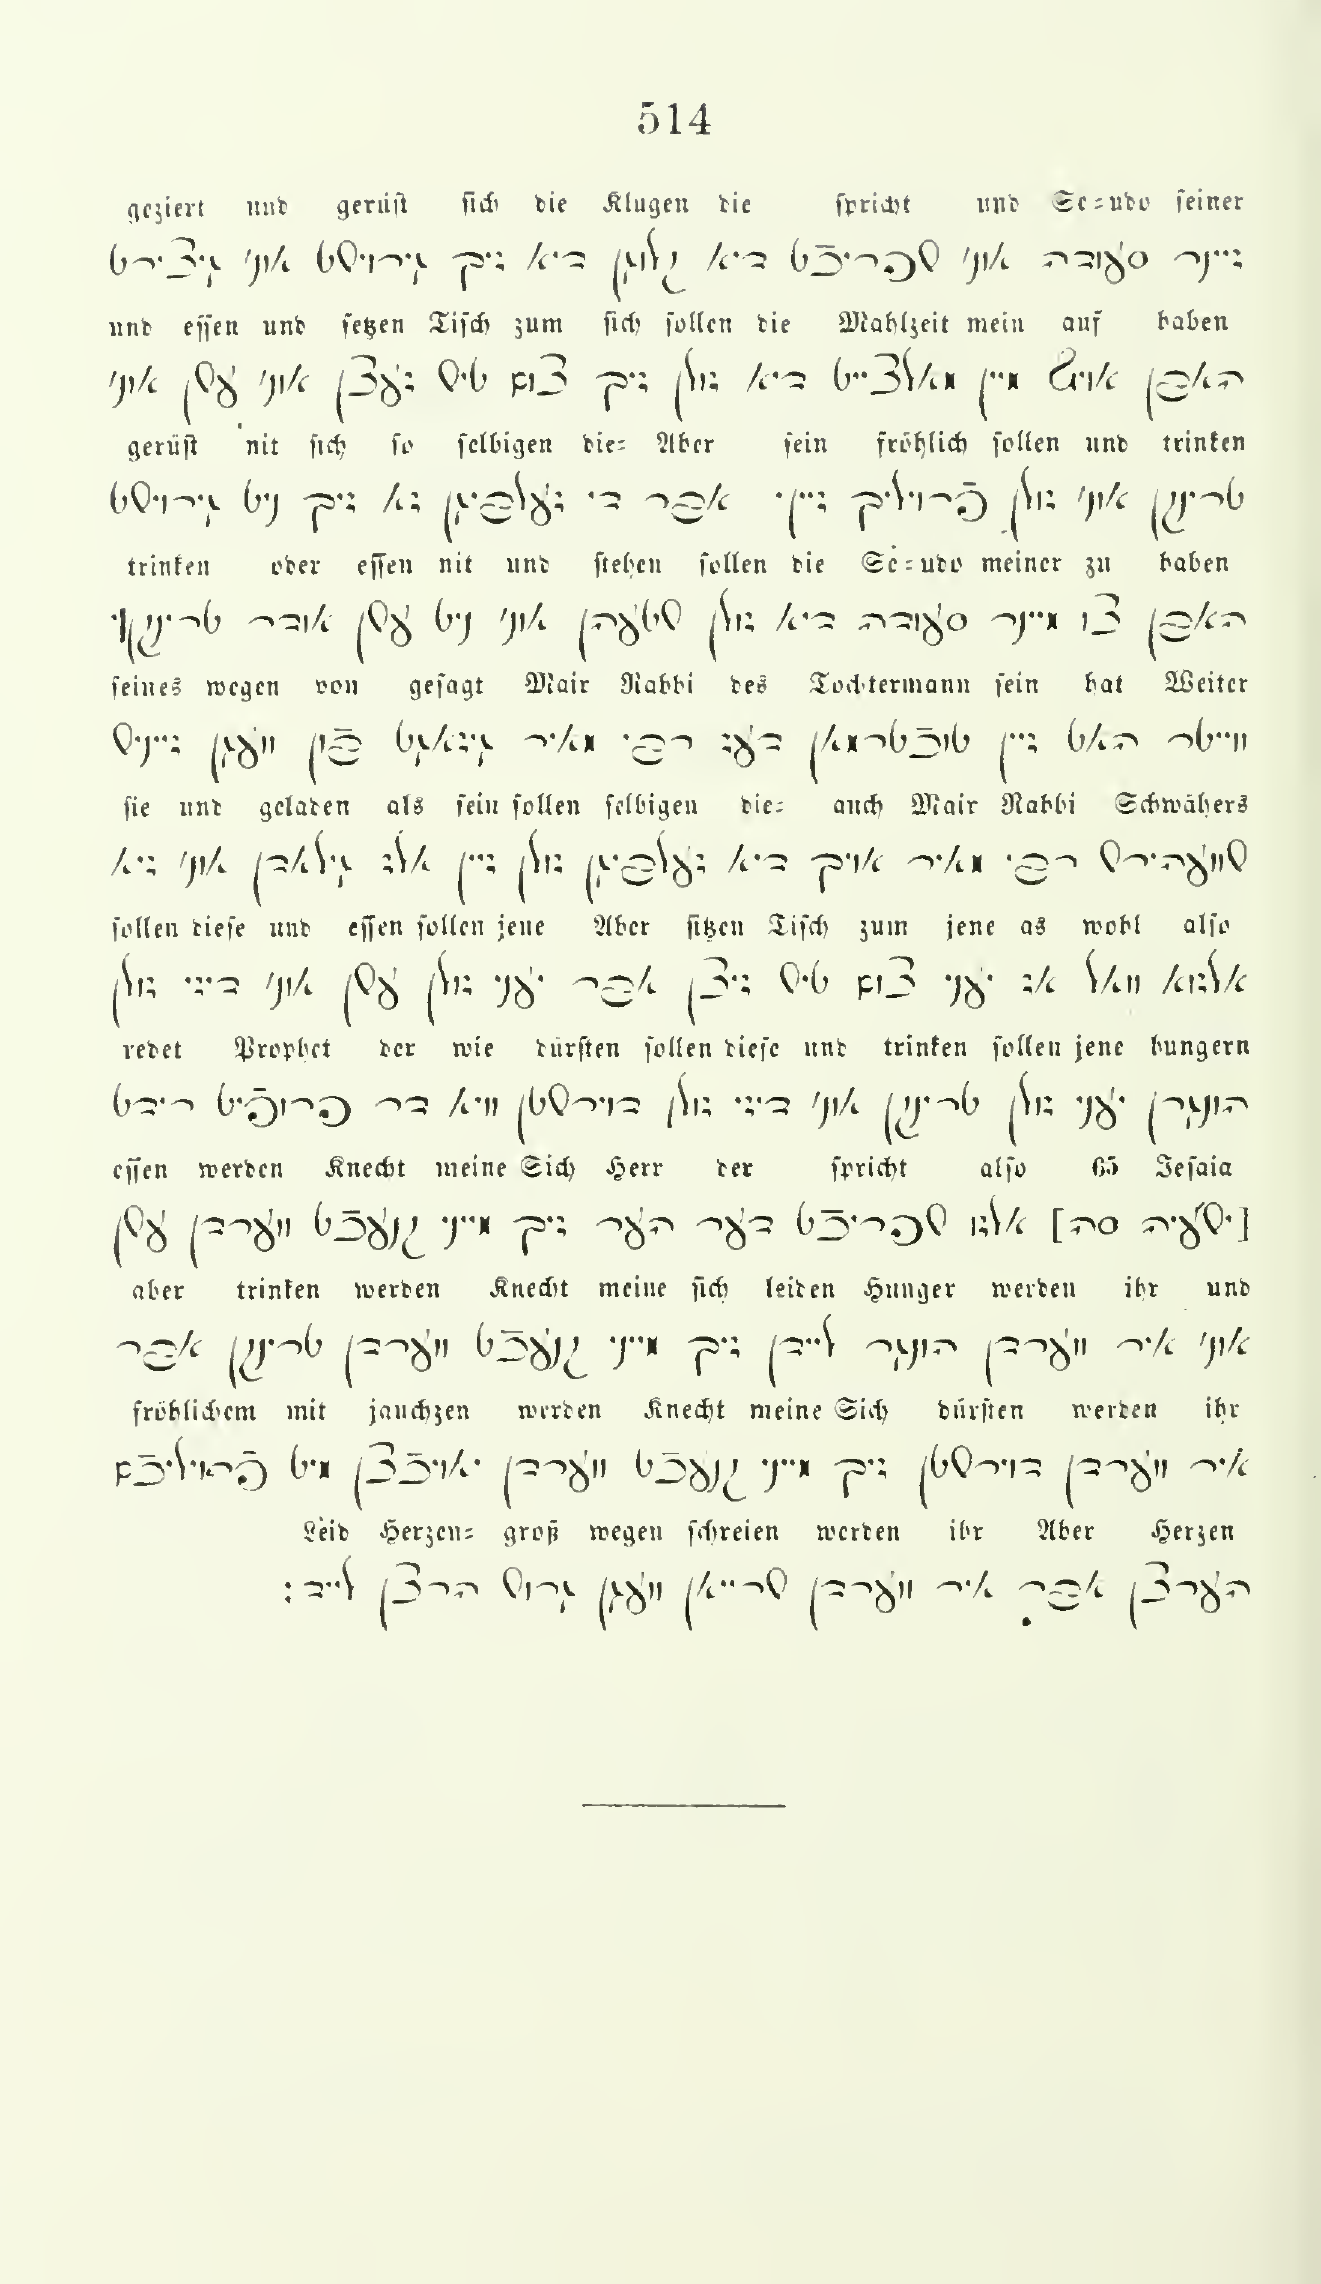 514
geziert und gerüst sich die Klugen die spricht und Se=udo seiner
זיינר סעודה אוני שפריכֿט דיא קלוגן דיא זיך גירוישט אוני גיצירט
und essen und setzen Tisch zum sich sollen die Mahlzeit mein auf haben
האבן אויף מיין מאלצייט דיא זולן זיך צום טיש זעצן אוני עשן אוני
gerüst nit sich so selbigen die= Aber sein fröhlich sollen und trinken
טרינקן אוני זולן פֿרויליך זיין אבר די זעלביגן זא זיך ניט גירוישט
trinken oder essen nit und stehen sollen die Se=udo meiner zu haben
האבן צו מיינר סעודה דיא זולן שטעהן אוני ניט עשן אודר טרינקן
seines wegen von gesagt Mair Rabbi des Tochtermann sein hat Weiter
ווייטר האט זיין טוכֿטרמאן דעז רבי מאיר גיזאגט בֿון וועגן זייניש
sie und geladen als sein sollen selbigen die= auch Mair Rabbi Schwähers
שוועהירש רבי מאיר אויך דיא זעלביגן זולן זיין אלז גילאדן אוני זיא
sollen diese und essen sollen jene Aber sitzen Tisch zum jene as wohl also
אלזוא וואל אז יעני צום טיש זיצן אבר יעני זולן עשן אוני דיזי זולן
redet Prophet der wie dürsten sollen diese und trinken sollen jene hungern
הונגרן יעני זולן טרינקן אוני דיזי זולן דוירשטן וויא דר פרופֿיט רידט
essen werden Knecht meine Sich Herr der spricht also 65 Jesaia
[ישעיה סה] אלזו שפריכֿט דער הער זיך מייני קנעכֿט ווערדן עשן
aber trinken werden Knecht meine sich leiden Hunger werden ihr und
אוני איר ווערדן הונגר ליידן זיך מייני קנעכֿט ווערדן טרינקן אבר
fröhlichem mit jauchzen werden Knecht meine Sich dürsten werden ihr
איר ווערדן דוירשטן זיך מייני קנעכֿט ווערדן יאויכֿצן מיט פֿרוליכֿם
Leid Herzen= groß wegen schreien werden ihr Aber Herzen
הערצן אבר איר ווערדן שרייאן וועגן גרוש הרצן לייד: